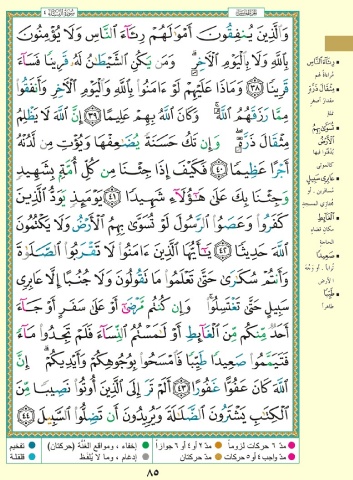 سورة النساء ٤
وَالَّذِينَ يُنفِقُونَ أَمْوَالَهُمْ رِئَاءَ النَّاسِ وَلَا يُؤْمِنُونَ
بِاللَّهِ وَلَا بِالْيَوْمِ الْآخِرِ ۗ وَمَن يَكُنِ الشَّيْطَانُ لَهُ قَرِينًا فَسَاءَ
قَرِينًا ﴿٣٨﴾ وَمَاذَا عَلَيْهِمْ لَوْ آمَنُوا بِاللَّهِ وَالْيَوْمِ الْآخِرِ وَأَنفَقُوا
مِمَّا رَزَقَهُمُ اللَّهُ ۚ وَكَانَ اللَّهُ بِهِمْ عَلِيمًا ﴿٣٩﴾ إِنَّ اللَّهَ لَا يَظْلِمُ
مِثْقَالَ ذَرَّةٍ ۖ وَإِن تَكُ حَسَنَةً يُضَاعِفْهَا وَيُؤْتِ مِن لَّدُنْهُ
أَجْرًا عَظِيمًا ﴿٤٠﴾ فَكَيْفَ إِذَا جِئْنَا مِن كُلِّ أُمَّةٍ بِشَهِيدٍ
وَجِئْنَا بِكَ عَلَىٰ هَٰؤُلَاءِ شَهِيدًا ﴿٤١﴾ يَوْمَئِذٍ يَوَدُّ الَّذِينَ
كَفَرُوا وَعَصَوُا الرَّسُولَ لَوْ تُسَوَّىٰ بِهِمُ الْأَرْضُ وَلَا يَكْتُمُونَ
اللَّهَ حَدِيثًا ﴿٤٢﴾ يَا أَيُّهَا الَّذِينَ آمَنُوا لَا تَقْرَبُوا الصَّلَاةَ
وَأَنتُمْ سُكَارَىٰ حَتَّىٰ تَعْلَمُوا مَا تَقُولُونَ وَلَا جُنُبًا إِلَّا عَابِرِي
سَبِيلٍ حَتَّىٰ تَغْتَسِلُوا ۚ وَإِن كُنتُم مَّرْضَىٰ أَوْ عَلَىٰ سَفَرٍ أَوْ جَاءَ
أَحَدٌ مِّنكُم مِّنَ الْغَائِطِ أَوْ لَامَسْتُمُ النِّسَاءَ فَلَمْ تَجِدُوا مَاءً
فَتَيَمَّمُوا صَعِيدًا طَيِّبًا فَامْسَحُوا بِوُجُوهِكُمْ وَأَيْدِيكُمْ ۗ إِنَّ
اللَّهَ كَانَ عَفُوًّا غَفُورًا ﴿٤٣﴾ أَلَمْ تَرَ إِلَى الَّذِينَ أُوتُوا نَصِيبًا مِّنَ
الْكِتَابِ يَشْتَرُونَ الضَّلَالَةَ وَيُرِيدُونَ أَن تَضِلُّوا السَّبِيلَ ﴿٤٤﴾
رِئَاءَ النَّاسِ
مِثْقَالَ ذَرَّةٍ
تُسَوَّىٰ بِهِمُ الْأَرْضُ
عَابِرِي سَبِيلٍ
الْغَائِطِ
صَعِيدًا
طَيِّبًا
مدّ ٦ حركات لزوماً مدّ ٢ أو ٤ أو ٦ جوازاً إخفاء، ومواقع الغُنَّة (حركتان) تفخيم
مدّ واجب ٤ أو ٥ حركات مدّ حركتان إدغام، وما لا يُلفَظ قلقلة
٨٥